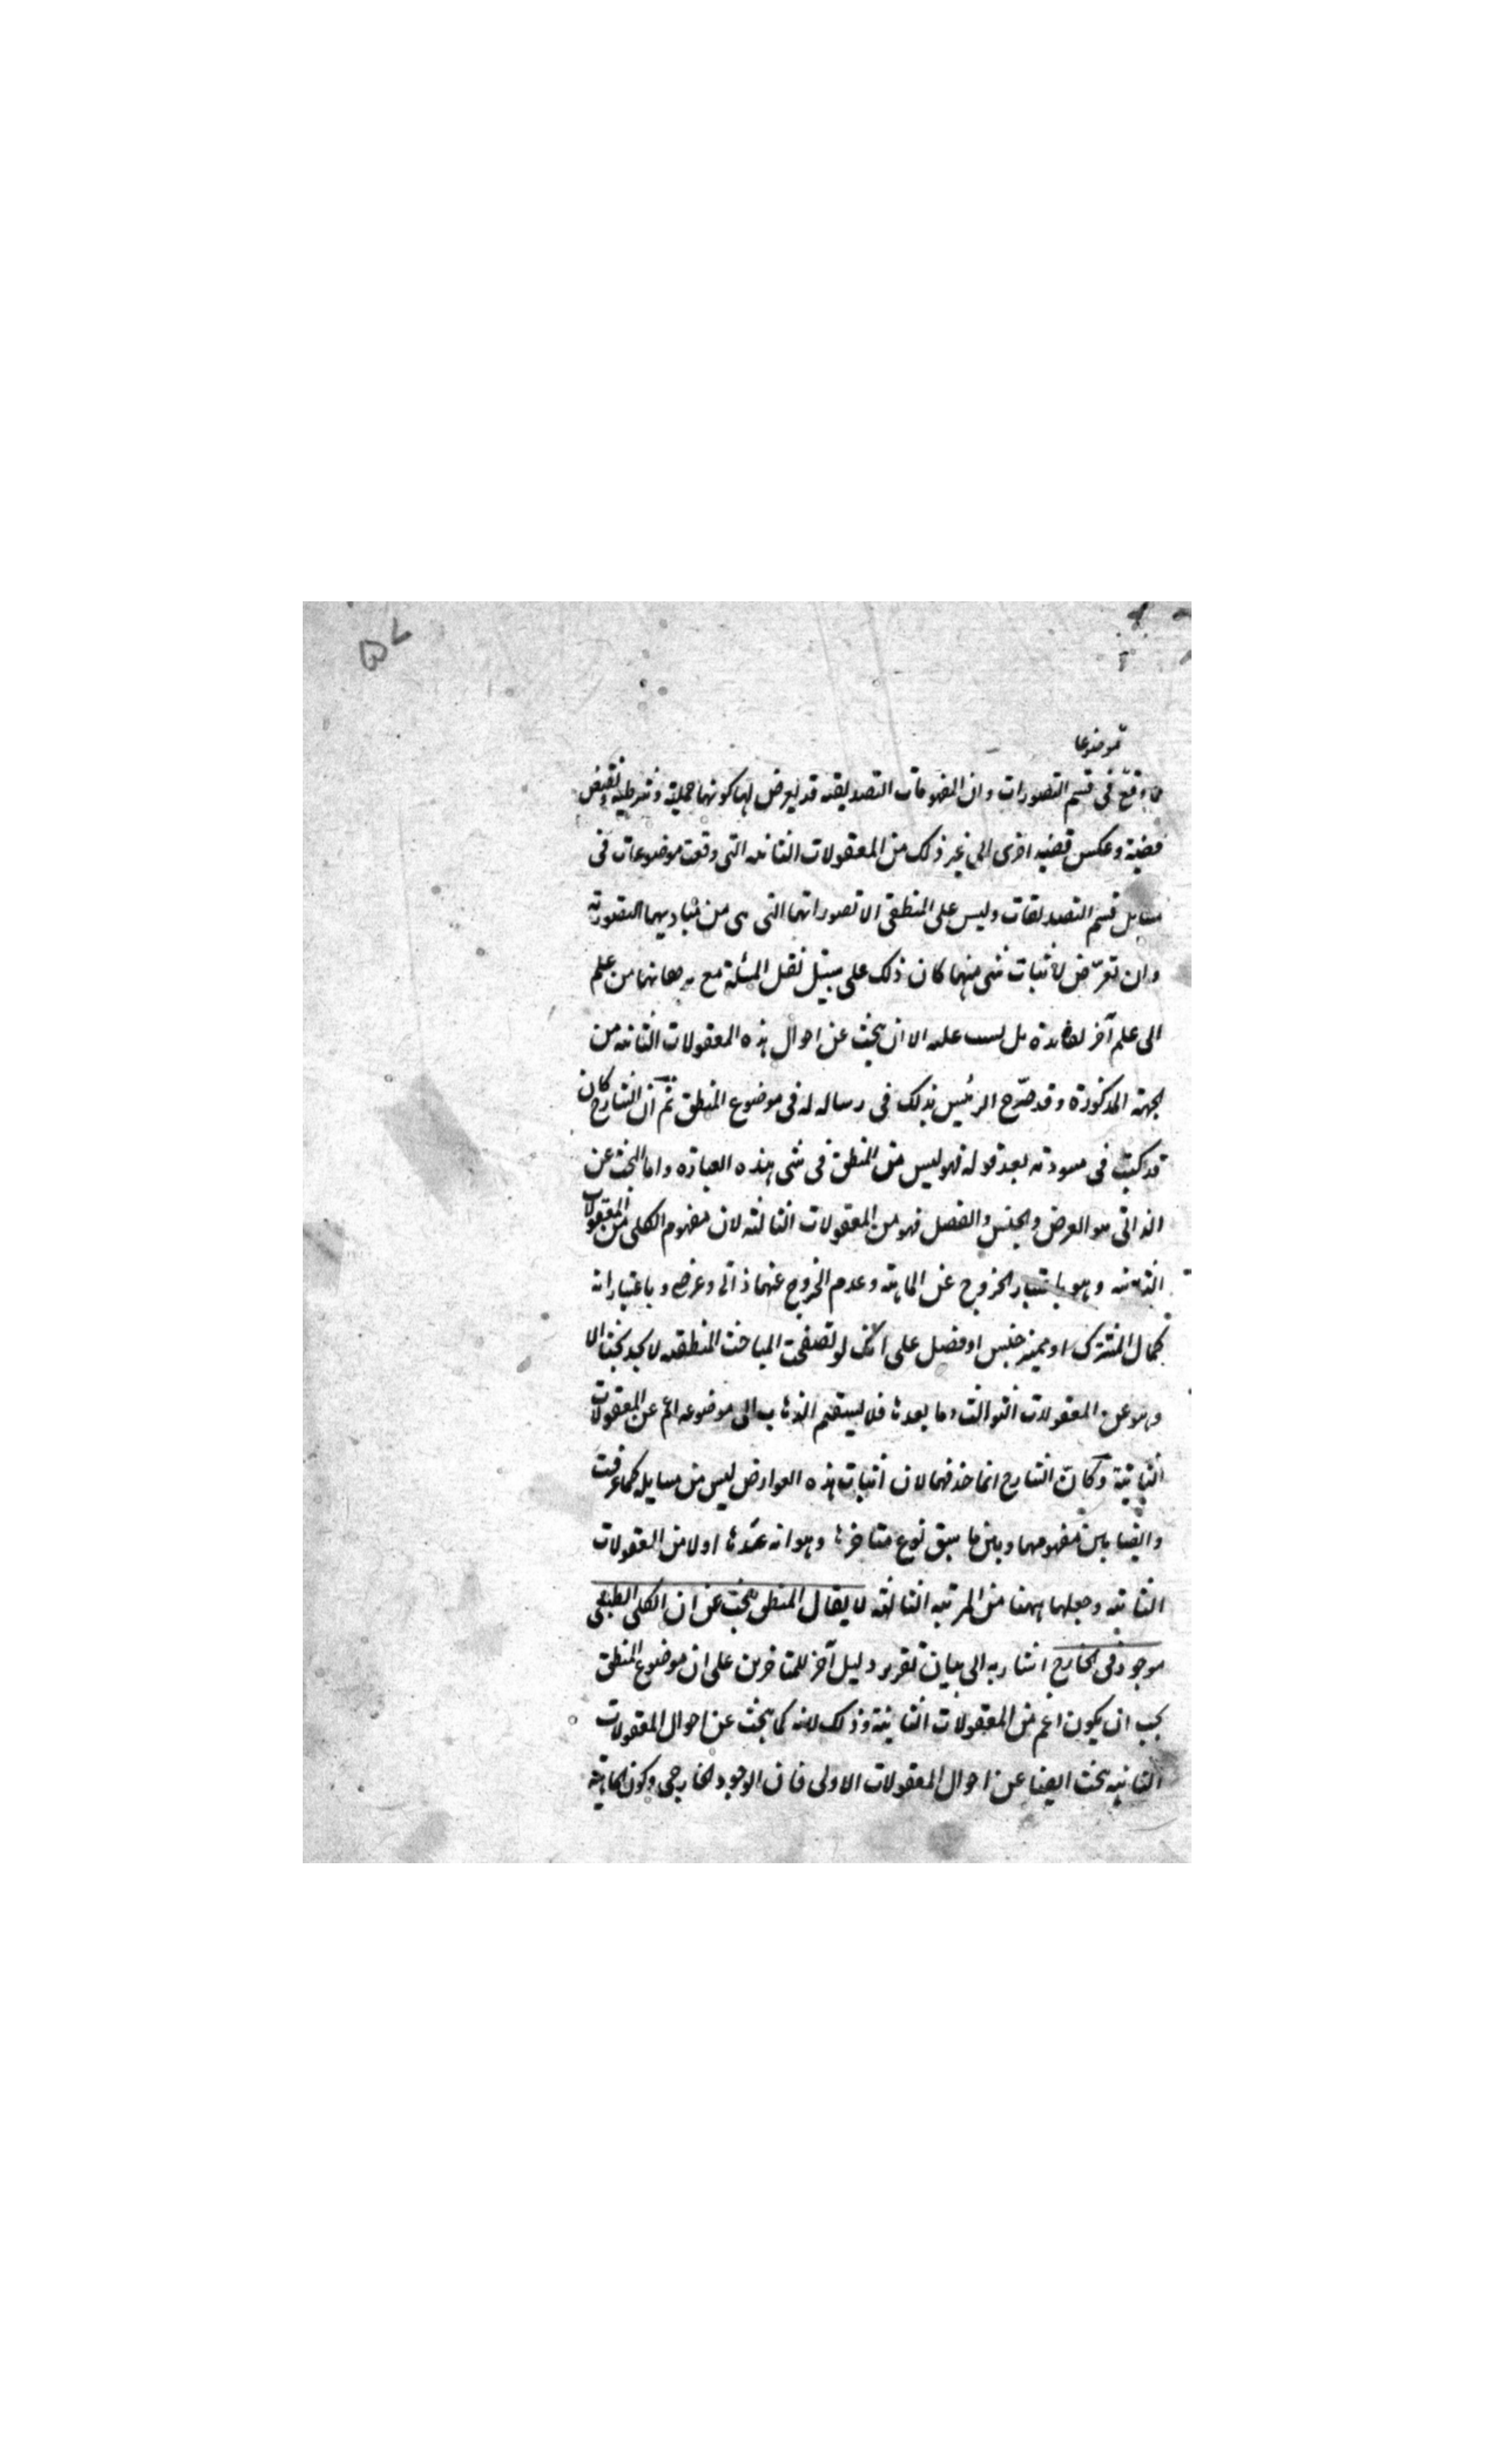 موضوعا
ما وقع فى قسم التصورات وان المفهومات التصديقية قد يعرض لها كونها حملية وشرطية ونقيض
قضية وعكس قضيه اخرى الى غير ذلك من المعقولات الثانيه التى وقعت موضوعات فى
مسايل قسم التصديقات وليس على المنطقى الا تصوراتها التى هى من مباديها التصورية
وان تعرّض لاثبات شى منها كان ذلك على سبيل نقل المسئلة مع برهانها من علم
الى علم آخر لفايدة بل ليس عليه الا ان يبحث عن احوال هذه المعقولات الثانيه من
الجهة المذكورة وقد صرّح الرئيس بذلك فى رساله له فى موضوع المنطق ثم ان الشارح كان
قد كتب فى مسودته بعد قوله فهو ليس من المنطق فى شى هذه العبارة واما البحث عن
الذاتى والعرض والجنس والفصل فهو من المعقولات الثالثة لان مفهوم الكلى من المعقولات
الثانيه وهو باعتبار الخروج عن الماهية وعدم الخروج عنها ذاتى وعرضى وباعتبار انه
كمال المشترك او مميز جنس او فصل على انك لو تصفحت المباحث المنطقيه لا تجد بحثا الا
وهو عن المعقولات الثوالث وما بعدها فلا يستقيم الذهاب الى موضوعه اعم عن المعقولات
الثانية وكان الشارح انما حذفها لان اثبات هذه العوارض ليس من مسايله كما عرفت
وايضا بين مفهومها وبين ما سبق نوع متاخرها وهو انه عدّها اولا من المعقولات
الثانيه وجعلها ههنا من المرتبه الثالثه لا يقال المنطقى يبحث عن ان الكلى الطبيعى
موجود فى الخارج اشار به الى بيان تقرير دليل آخر للمتاخرين على ان موضوع المنطق
يجب ان يكون اعم من المعقولات الثانية وذلك لانه كما يبحث عن احوال المعقولات
الثانيه يبحث ايضا عن احوال المعقولات الاولى فان الوجود الخارجى وكون الماهية